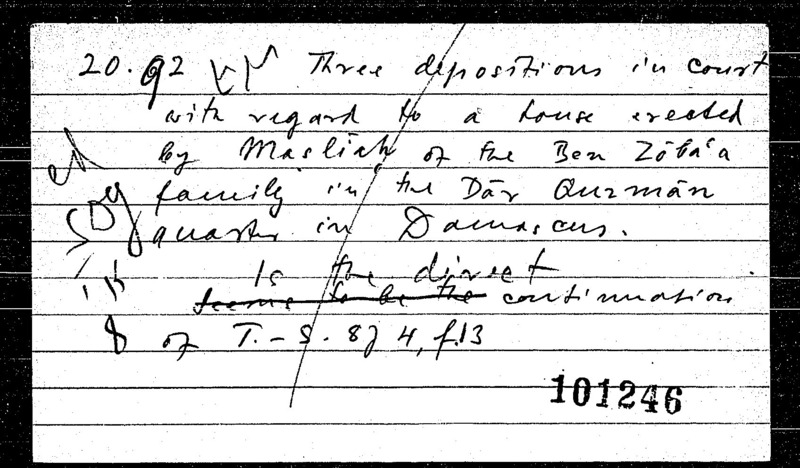 20.92 Three depositions in court
with regard to a house erected
by Maṣlīaḥ of the Ben Zōbāʿa
family in the Dār Quzmān
quarter in Damascus.
Is the direct
seems to be the continuation
of T.-S. 8J 4, f.13
101246